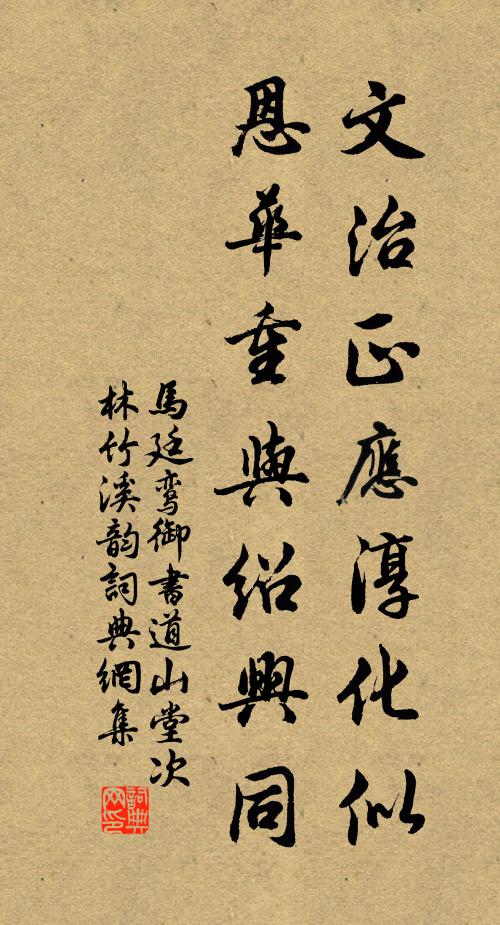 文治正應淳化似
恩華重與紹興同
馬廷鸞御書道山堂次
林竹溪韵詞典網集
詞典网印